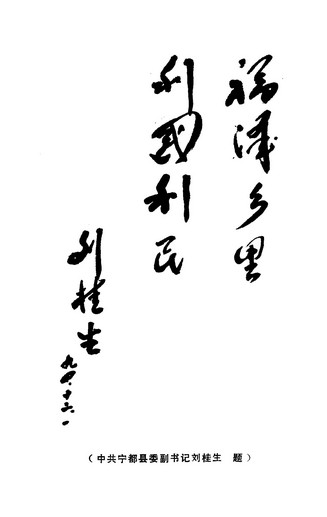 福泽乡里
利国利民
刘桂生
（中共宁都县委副书记刘桂生 题）